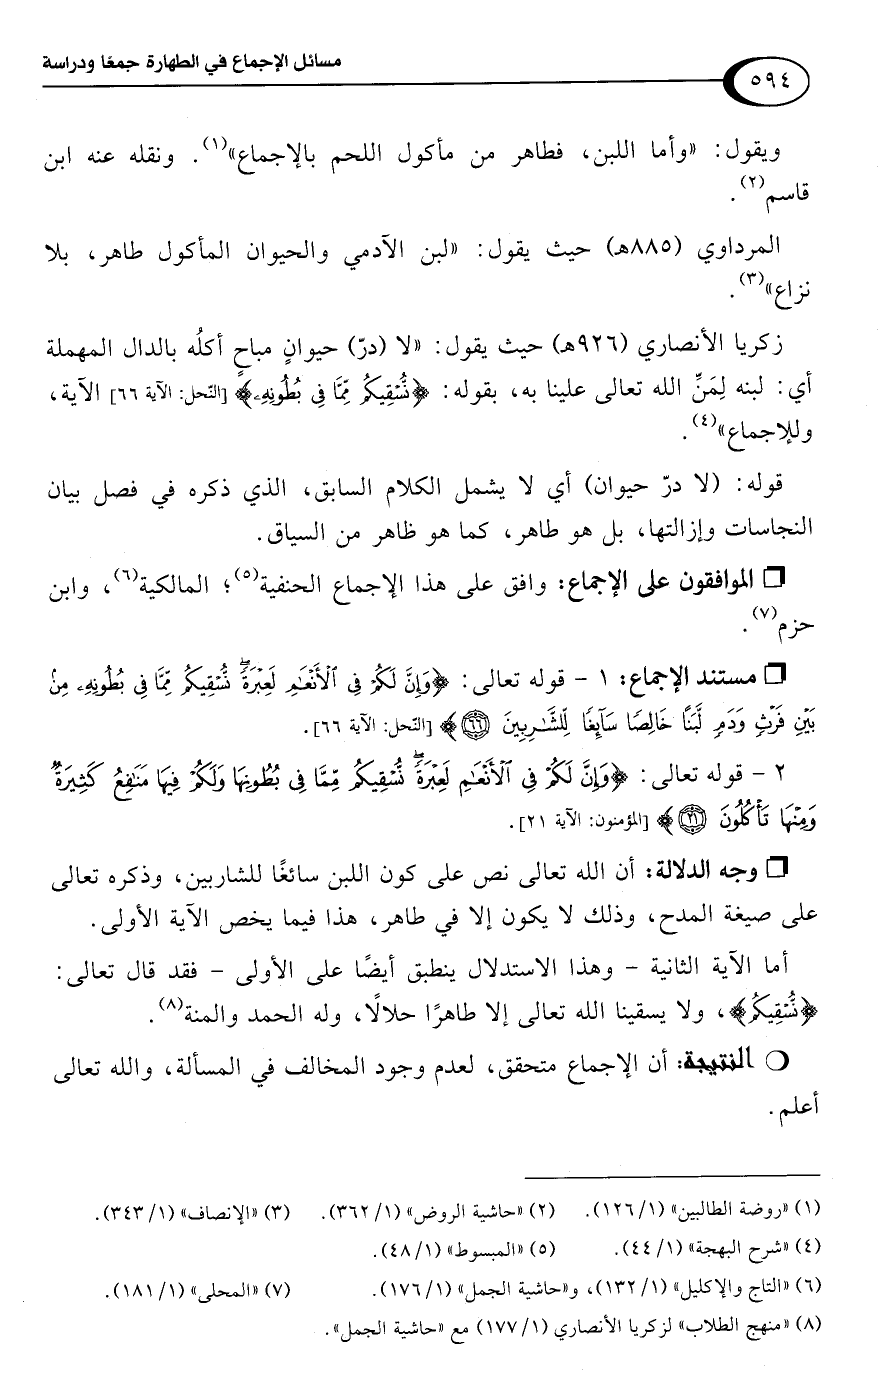 مسائل الإجماع في الطهارة جمعًا ودراسة
٥٩٤
ويقول: «وأما اللبن، فطاهر من مأكول اللحم بالإجماع»(١). ونقله عنه ابن
قاسم(٢).
المرداوي (٨٨٥هـ) حيث يقول: «لبن الآدمي والحيوان المأكول طاهر، بلا
نزاع»(٣).
زكريا الأنصاري (٩٢٦هـ) حيث يقول: «لا (درّ) حيوانٍ مباحٍ أكلُه بالدال المهملة
أي: لبنه لِمَنِّ الله تعالى علينا به، بقوله: ﴿نُّسْقِيكُم مِّمَّا فِي بُطُونِهِۦ﴾ [النّحل: الآية ٦٦] الآية،
وللإجماع»(٤).
قوله: (لا درّ حيوان) أي لا يشمل الكلام السابق، الذي ذكره في فصل بيان
النجاسات وإزالتها، بل هو طاهر، كما هو ظاهر من السياق.
❒ الموافقون على الإجماع: وافق على هذا الإجماع الحنفية(٥)؛ المالكية(٦)، وابن
حزم(٧).
❒ مستند الإجماع: ١ - قوله تعالى: ﴿وَإِنَّ لَكُمْ فِي ٱلْأَنْعَٰمِ لَعِبْرَةً ۖ نُّسْقِيكُم مِّمَّا فِي بُطُونِهِۦ مِنۢ
بَيْنِ فَرْثٍ وَدَمٍ لَّبَنًا خَالِصًا سَآئِغًا لِّلشَّٰرِبِينَ ٦٦﴾ [النّحل: الآية ٦٦].
٢ - قوله تعالى: ﴿وَإِنَّ لَكُمْ فِي ٱلْأَنْعَٰمِ لَعِبْرَةً ۖ نُّسْقِيكُم مِّمَّا فِي بُطُونِهَا وَلَكُمْ فِيهَا مَنَٰفِعُ كَثِيرَةٌ
وَمِنْهَا تَأْكُلُونَ ٢١﴾ [المؤمنون: الآية ٢١].
❒ وجه الدلالة: أن الله تعالى نص على كون اللبن سائغًا للشاربين، وذكره تعالى
على صيغة المدح، وذلك لا يكون إلا في طاهر، هذا فيما يخص الآية الأولى.
أما الآية الثانية - وهذا الاستدلال ينطبق أيضًا على الأولى - فقد قال تعالى:
﴿نُّسْقِيكُم﴾، ولا يسقينا الله تعالى إلا طاهرًا حلالًا، وله الحمد والمنة(٨).
❍ النتيجة: أن الإجماع متحقق، لعدم وجود المخالف في المسألة، والله تعالى
أعلم.
(١) «روضة الطالبين» (١/ ١٢٦). (٢) «حاشية الروض» (١/ ٣٦٢). (٣) «الإنصاف» (١/ ٣٤٣).
(٤) «شرح البهجة» (١/ ٤٤). (٥) «المبسوط» (١/ ٤٨).
(٦) «التاج والإكليل» (١/ ١٣٢)، و«حاشية الجمل» (١/ ١٧٦). (٧) «المحلى» (١/ ١٨١).
(٨) «منهج الطلاب» لزكريا الأنصاري (١/ ١٧٧) مع «حاشية الجمل».